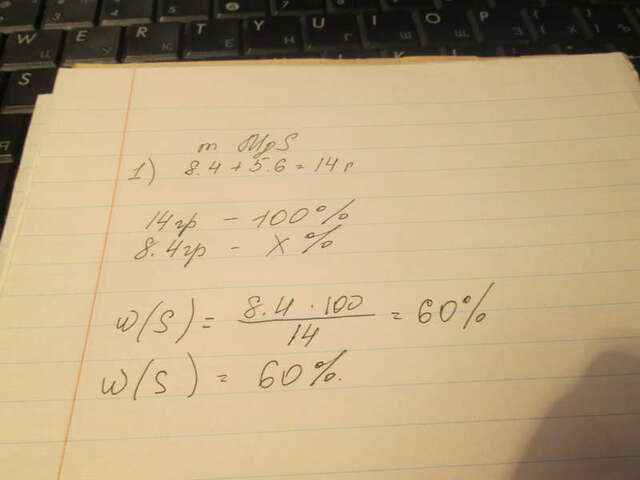 W E R T Y U I O P
S
m MgS
1) 8.4 + 5.6 = 14 г
14гр - 100%
8.4гр - X%
w(S) = 8.4 · 100 / 14 = 60%
w(S) = 60%.